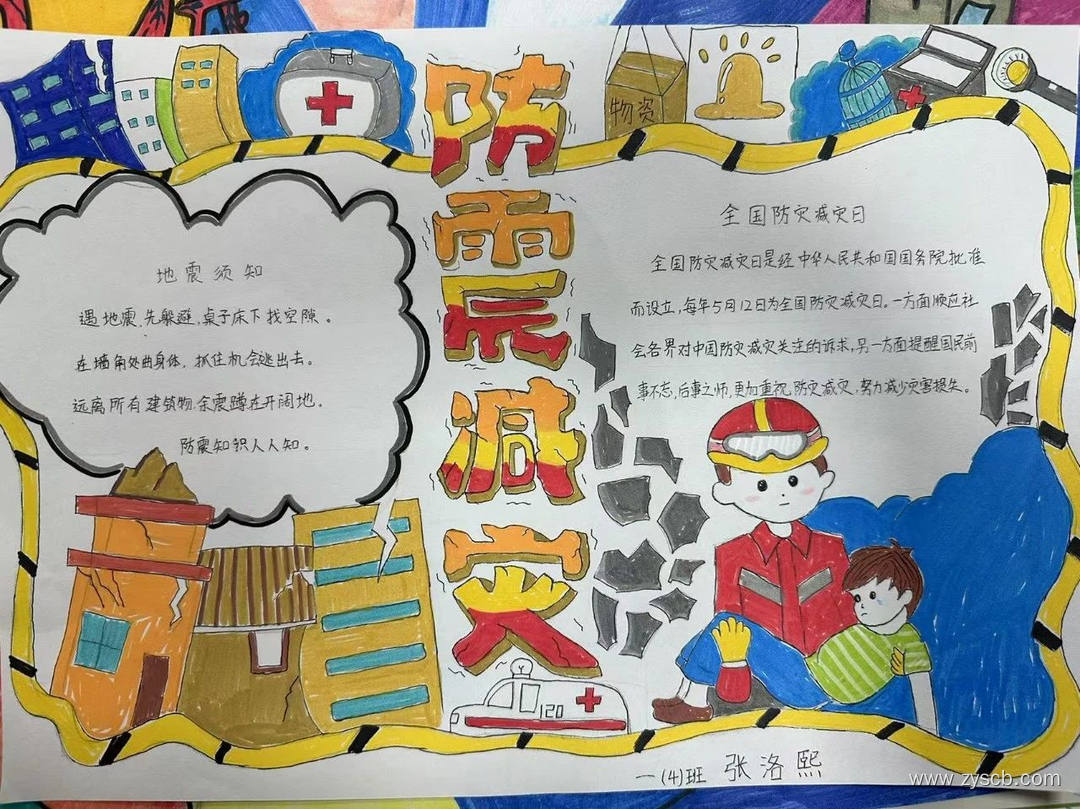 防震减灾
物资
地震须知
遇地震,先躲避,桌子床下找空隙。
在墙角处曲身体,抓住机会逃出去。
远离所有建筑物,余震蹲在开阔地。
防震知识人人知。
全国防灾减灾日
全国防灾减灾日是经中华人民共和国国务院批准
而设立,每年5月12日为全国防灾减灾日。一方面顺应社
会各界对中国防灾减灾关注的诉求,另一方面提醒国民前
事不忘,后事之师,更加重视防灾减灾,努力减少灾害损失。
120
一(4)班 张洛熙
www.zyscb.com